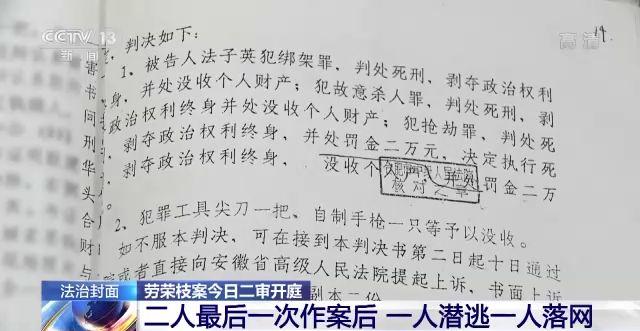 CCTV 13
新闻
高清
19
判决如下：
1、被告人法子英犯绑架罪，判处死刑，剥夺政治权利
身，并处没收个人财产；犯故意杀人罪，判处死刑，剥
政治权利终身并处没收个人财产；犯抢劫罪，判处死
剥夺政治权利终身，并处罚金二万元，决定执行死
剥夺政治权利终身，没收个人财产，并处罚金二万
核对之章
2、犯罪工具尖刀一把、自制手枪一只等予以没收。
如不服本判决，可在接到本判决书第二日起十日通过
院或者直接向安徽省高级人民法院提起上诉，书面上诉
副本二份
害
书
同
刑
华
头
合
财
与
法治封面
劳荣枝案今日二审开庭
二人最后一次作案后 一人潜逃一人落网